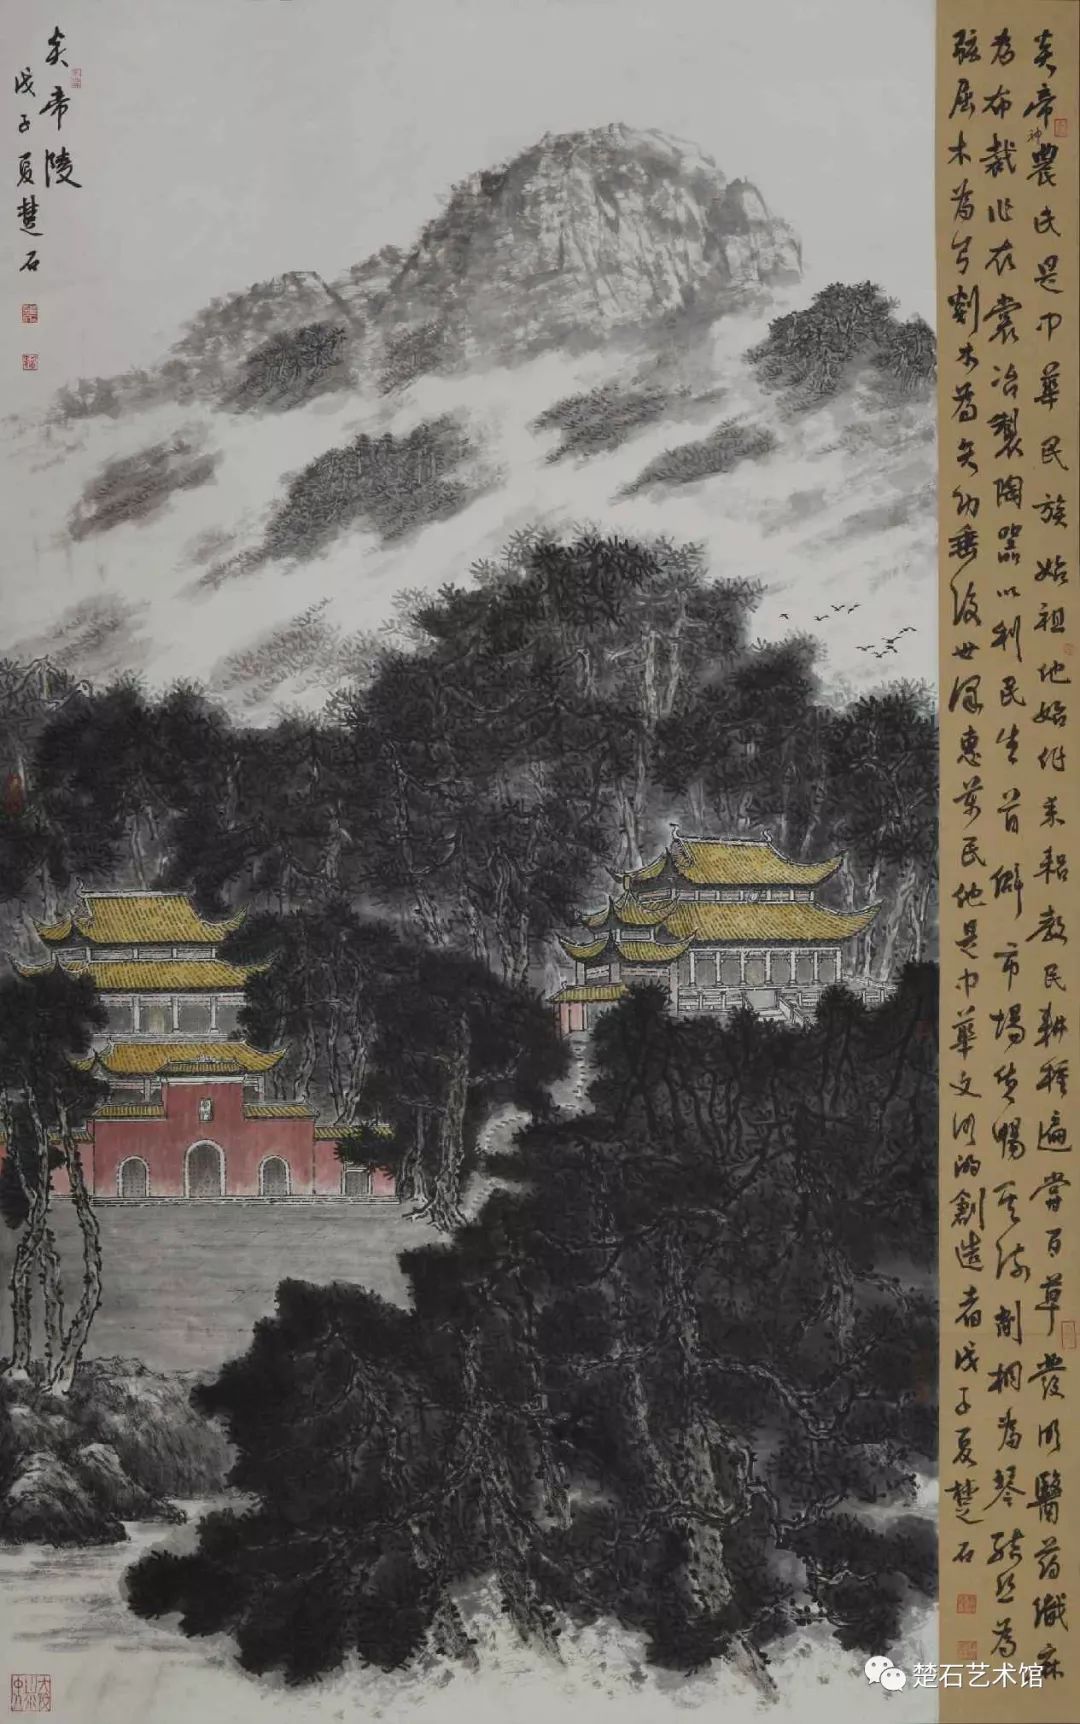 炎帝神農氏是中華民族始祖他始作耒耜教民耕種遍嘗百草發明醫葯織麻
為布裁作衣裳冶製陶器以利民生首僻市場貨暢其流削桐為琴結絲為
弦屈木為弓剡木為矢功垂後世澤惠萬民他是中華文明的創造者戊子夏楚石
炎帝陵
戊子夏楚石
楚石艺术馆